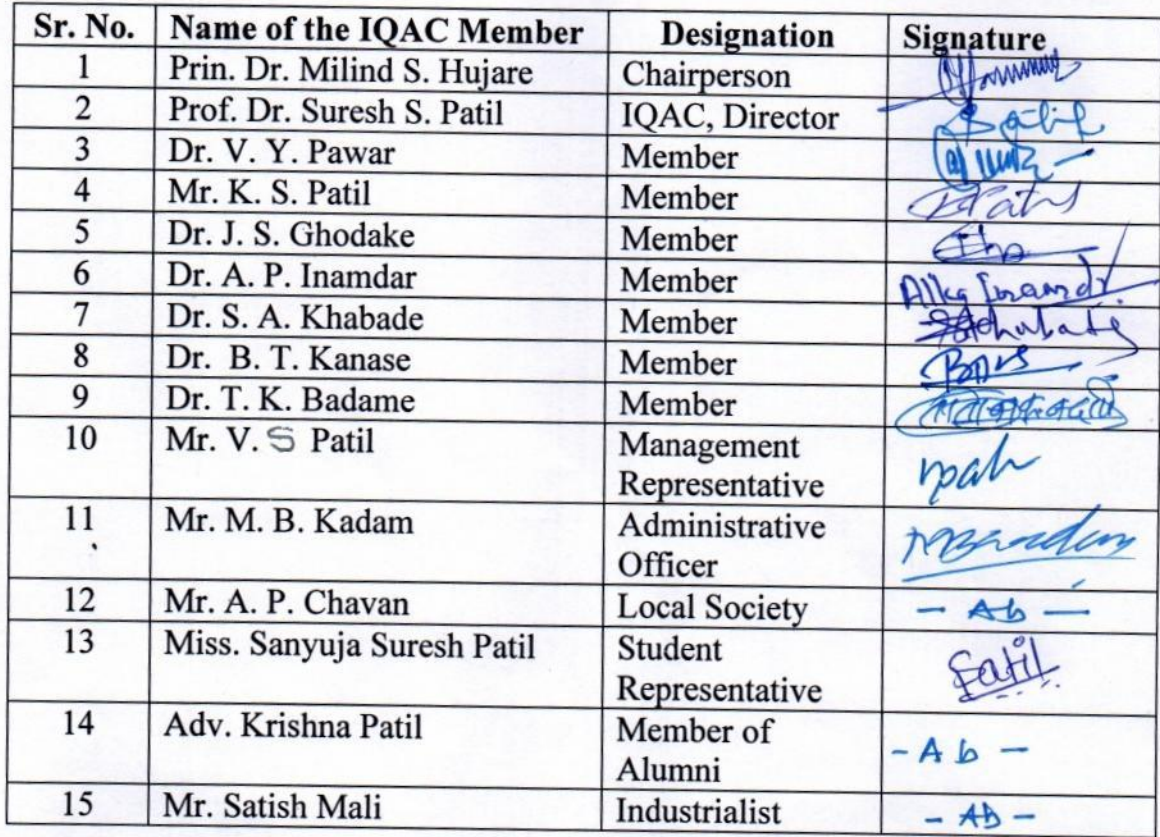 Sr. No. Name of the IQAC Member Designation Signature
1 Prin. Dr. Milind S. Hujare Chairperson
2 Prof. Dr. Suresh S. Patil IQAC, Director Patil
3 Dr. V. Y. Pawar Member
4 Mr. K. S. Patil Member
5 Dr. J. S. Ghodake Member
6 Dr. A. P. Inamdar Member Alka Inamdar
7 Dr. S. A. Khabade Member
8 Dr. B. T. Kanase Member
9 Dr. T. K. Badame Member
10 Mr. V. S Patil Management
Representative
11 Mr. M. B. Kadam Administrative
Officer
12 Mr. A. P. Chavan Local Society - Ab -
13 Miss. Sanyuja Suresh Patil Student
Representative
Patil
14 Adv. Krishna Patil Member of
Alumni
- Ab -
15 Mr. Satish Mali Industrialist - Ab -